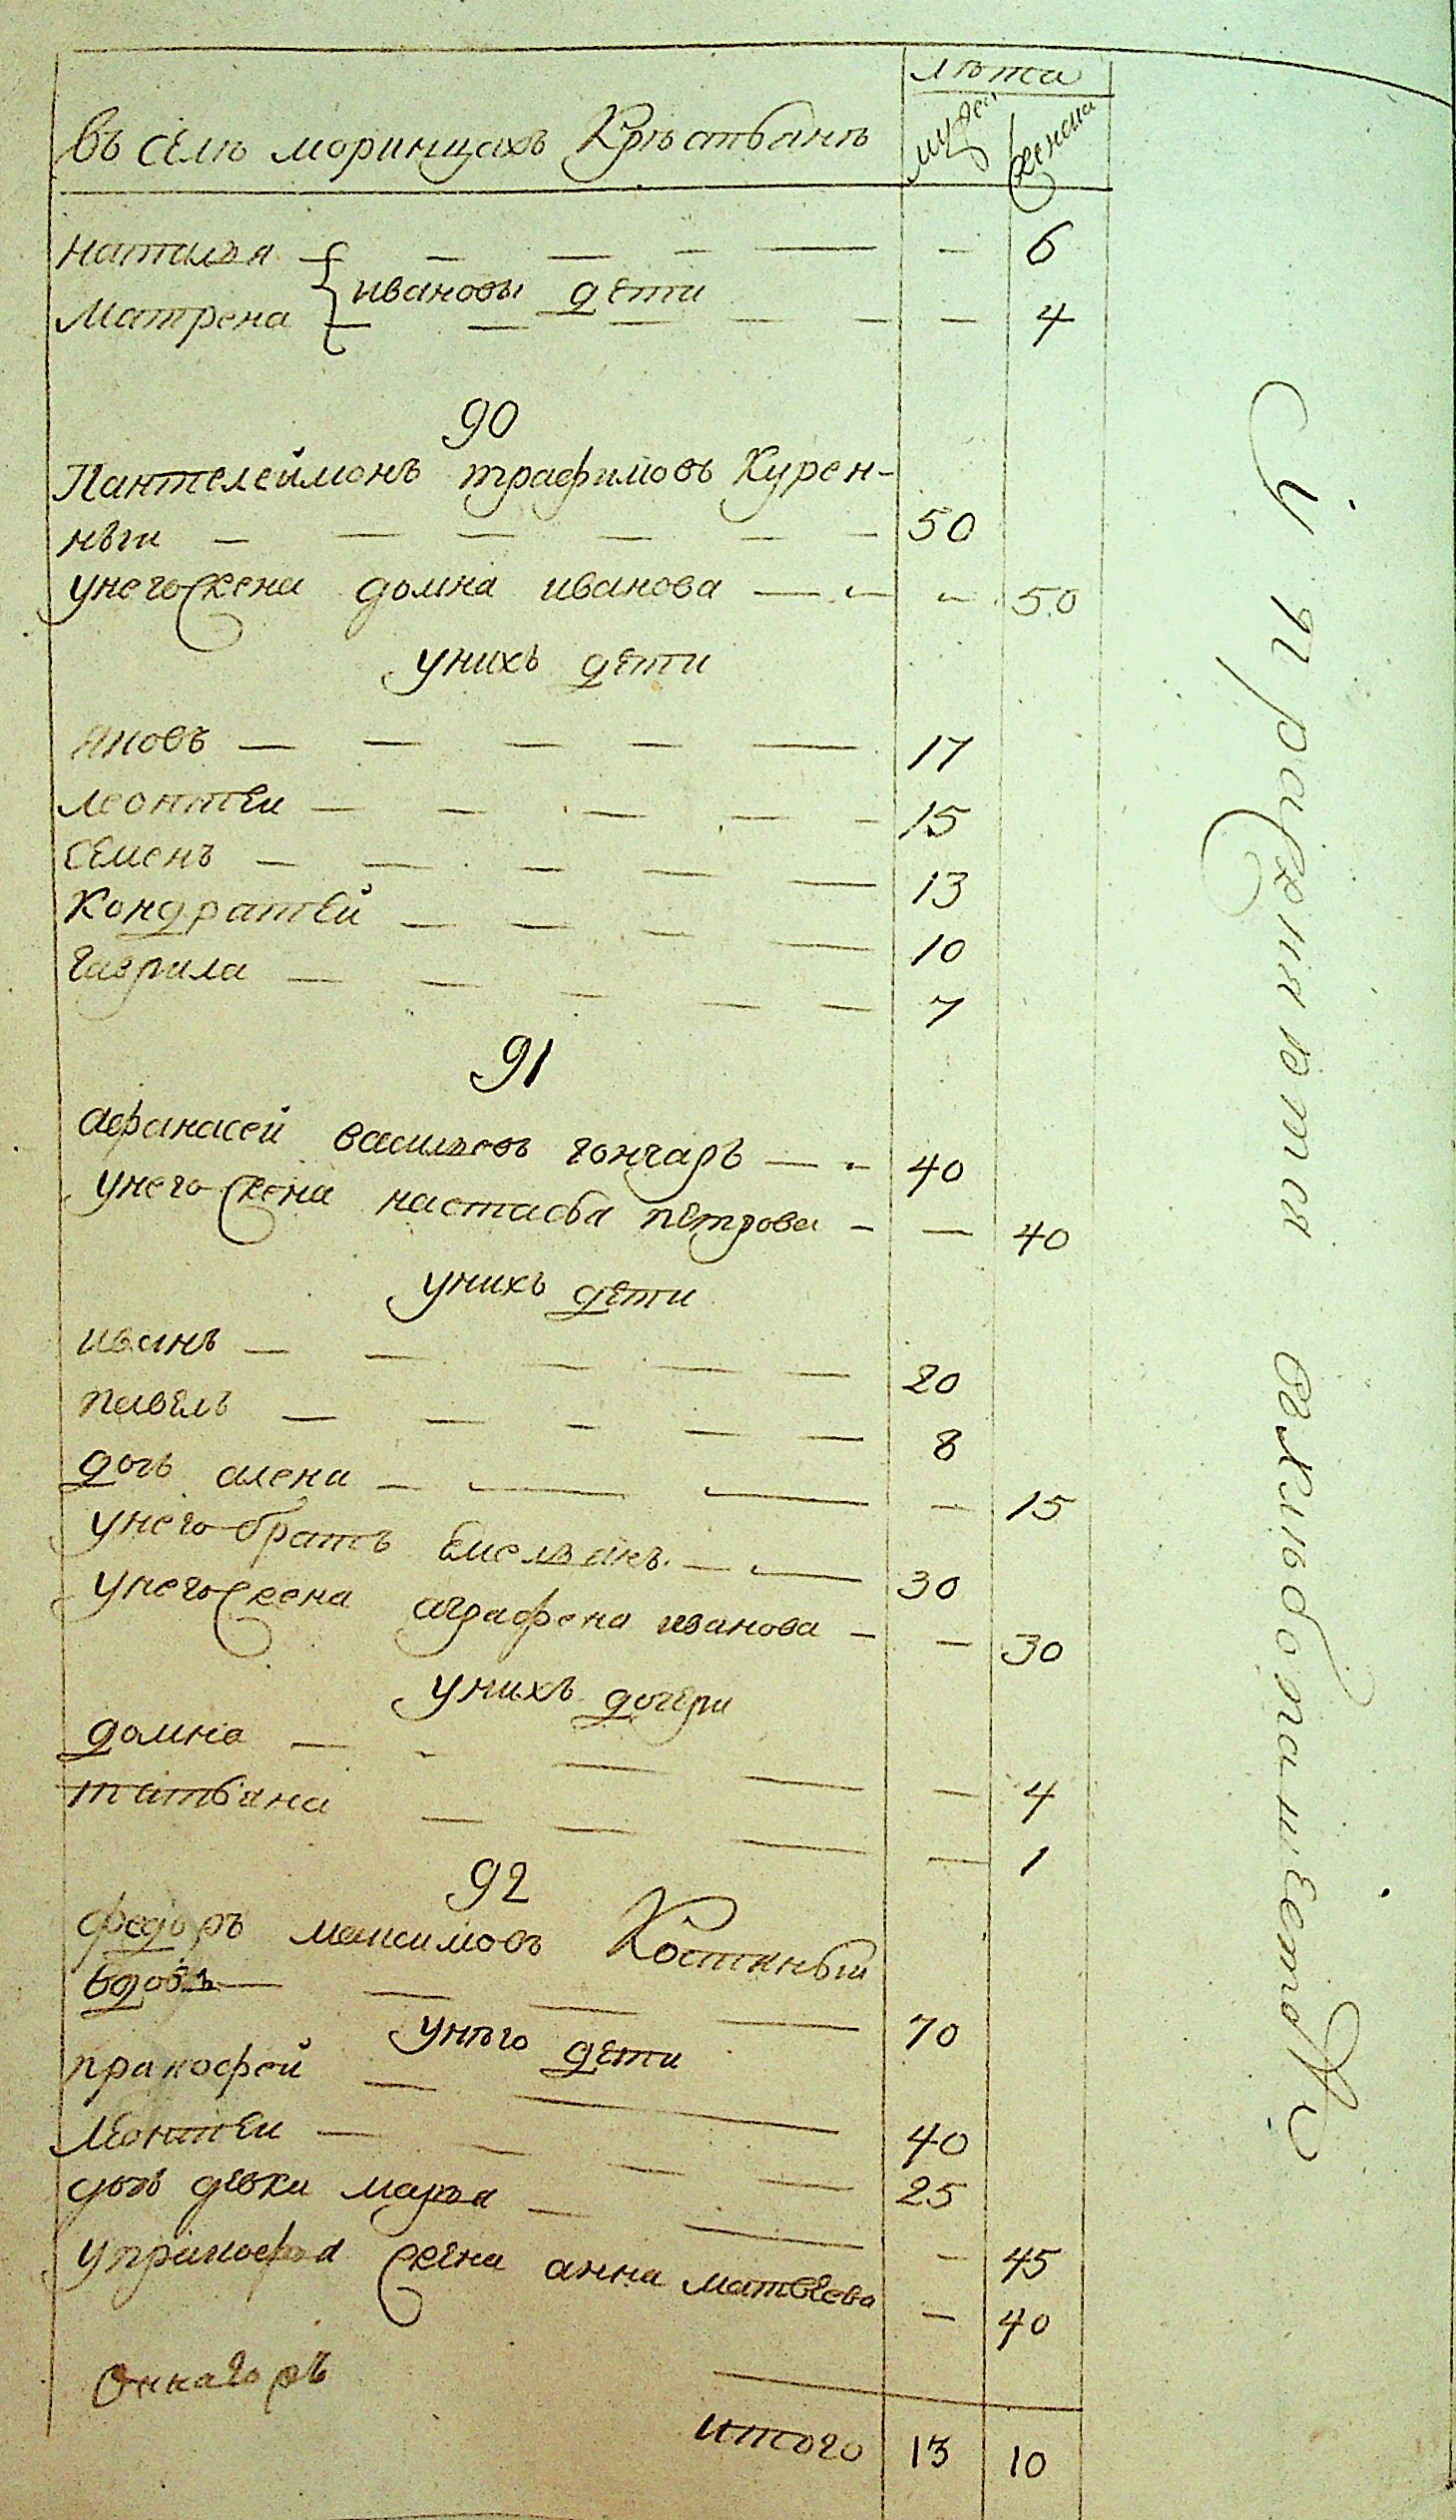 лѣта
въ селѣ моринцахъ Крѣстьянъ мужеска женска
наталья — — — — — 6
ивановы дети
Матрена — — — — — — 4
90
Пантелеймонъ трафимовъ Курен-
ный — — — — — — 50
унего жена домна иванова — — — 50
унихъ дети
яковъ — — — — — 17
леонтеи — — — — — 15
семенъ — — — — — 13
Кондратей — — — — 10
гаврила — — — — — 7
91
афанасей васильевъ гончаръ — — 40
унего жена настасья петрова — — 40
унихъ дети
иванъ — — — — — 20
павелъ — — — — — 8
дочь алена — — — — 15
унего братъ емельянъ — — 30
унего жена аграфена иванова — — 30
унихъ дочери
домна — — — — — 4
татьяна — — — — 1
92
федоръ максимовъ Костяный
вдовъ — — — — 70
унѣго дети
пракофей — — 40
леонтеи — — — — 25
дочь девка марья — — — 45
упракофья жена анна матвеева — 40
итого 13 10
И принята